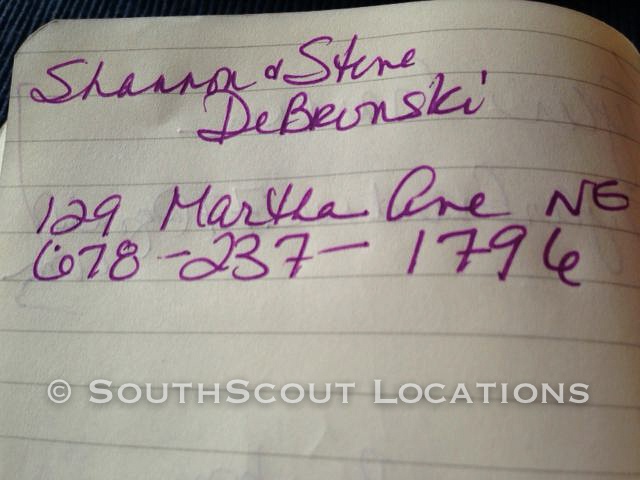 Shannon & Steve
DeBronski
129 Martha Ave NE
678-237-1796
© SouthScout Locations